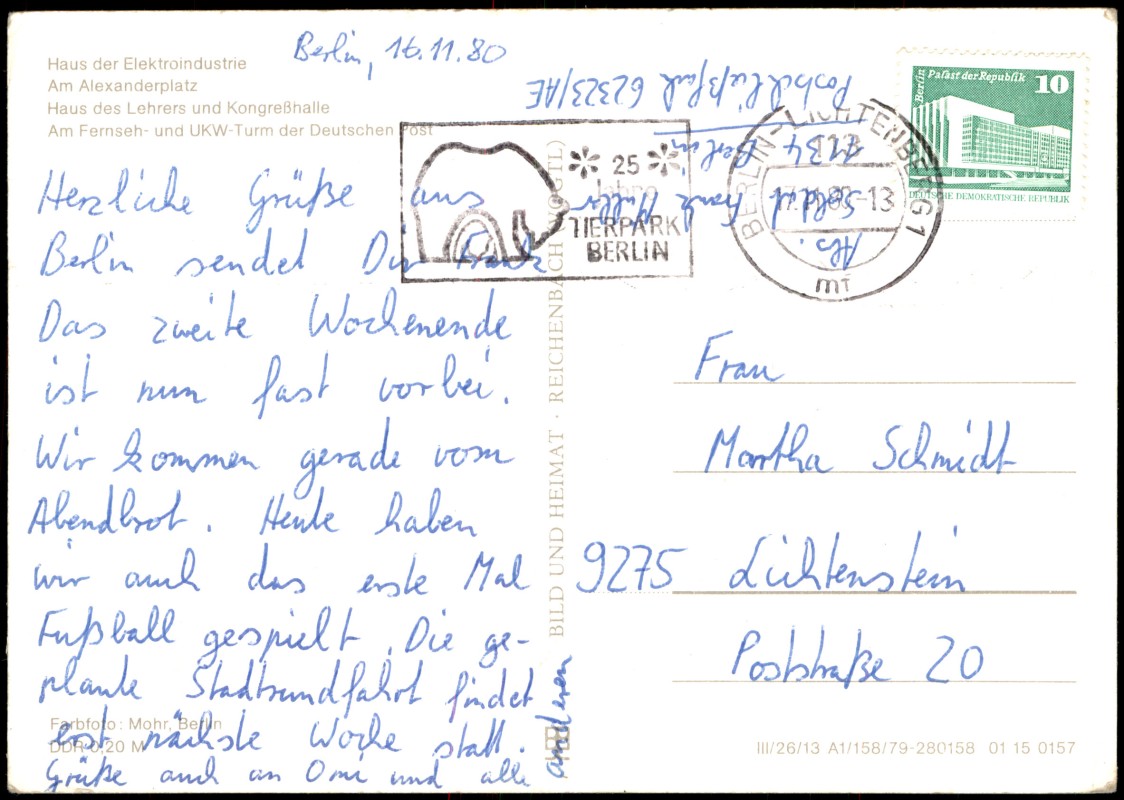 Haus der Elektroindustrie
Am Alexanderplatz
Haus des Lehrers und Kongreßhalle
Am Fernseh- und UKW-Turm der Deutschen Post
Berlin, 16.11.80
Herzliche Grüße aus
Berlin sendet Dir Frank
Das zweite Wochenende
ist nun fast vorbei.
Wir kommen gerade vom
Abendbrot. Heute haben
wir auch das erste Mal
Fußball gespielt. Die ge-
plante Stadtrundfahrt findet
erst nächste Woche statt.
Grüße auch an Omi und alle
anderen
Farbfoto: Mohr, Berlin
DDR 0,20 M
BILD UND HEIMAT · REICHENBACH (VOGTL)
Abs. Soldat Frank
1134 Berlin
Postschließfach 62323/AE
25
Jahre
TIERPARK
BERLIN
BERLIN-LICHTENBERG 1
17.11.80-13
mr
Berlin Palast der Republik
10
DEUTSCHE DEMOKRATISCHE REPUBLIK
Frau
Martha Schmidt
9275 Lichtenstein
Poststraße 20
III/26/13 A1/158/79-280158 01 15 0157